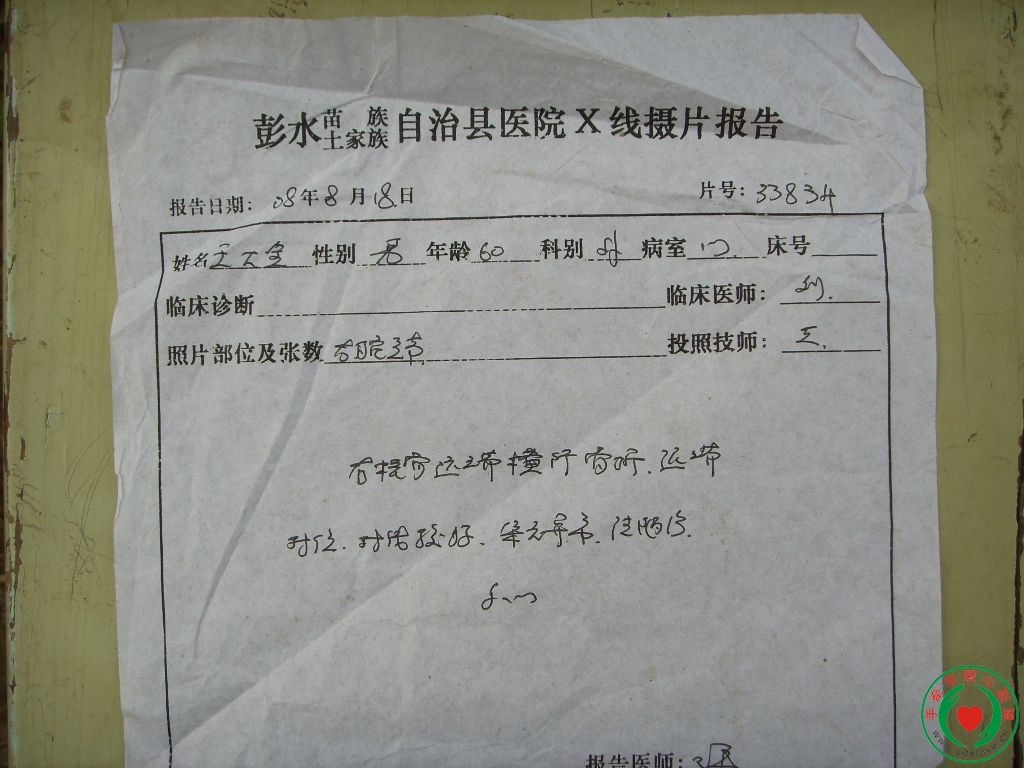 彭水苗族土家族自治县医院X线摄片报告
报告日期：08年8月18日 片号：33834
姓名 王 全 性别 男 年龄 60 科别 外 病室 门 床号
临床诊断 临床医师：刘
照片部位及张数 右腕 投照技师：王
右桡骨远端横行骨折.远端
对位.对线较好.余无异常.
报告医师：